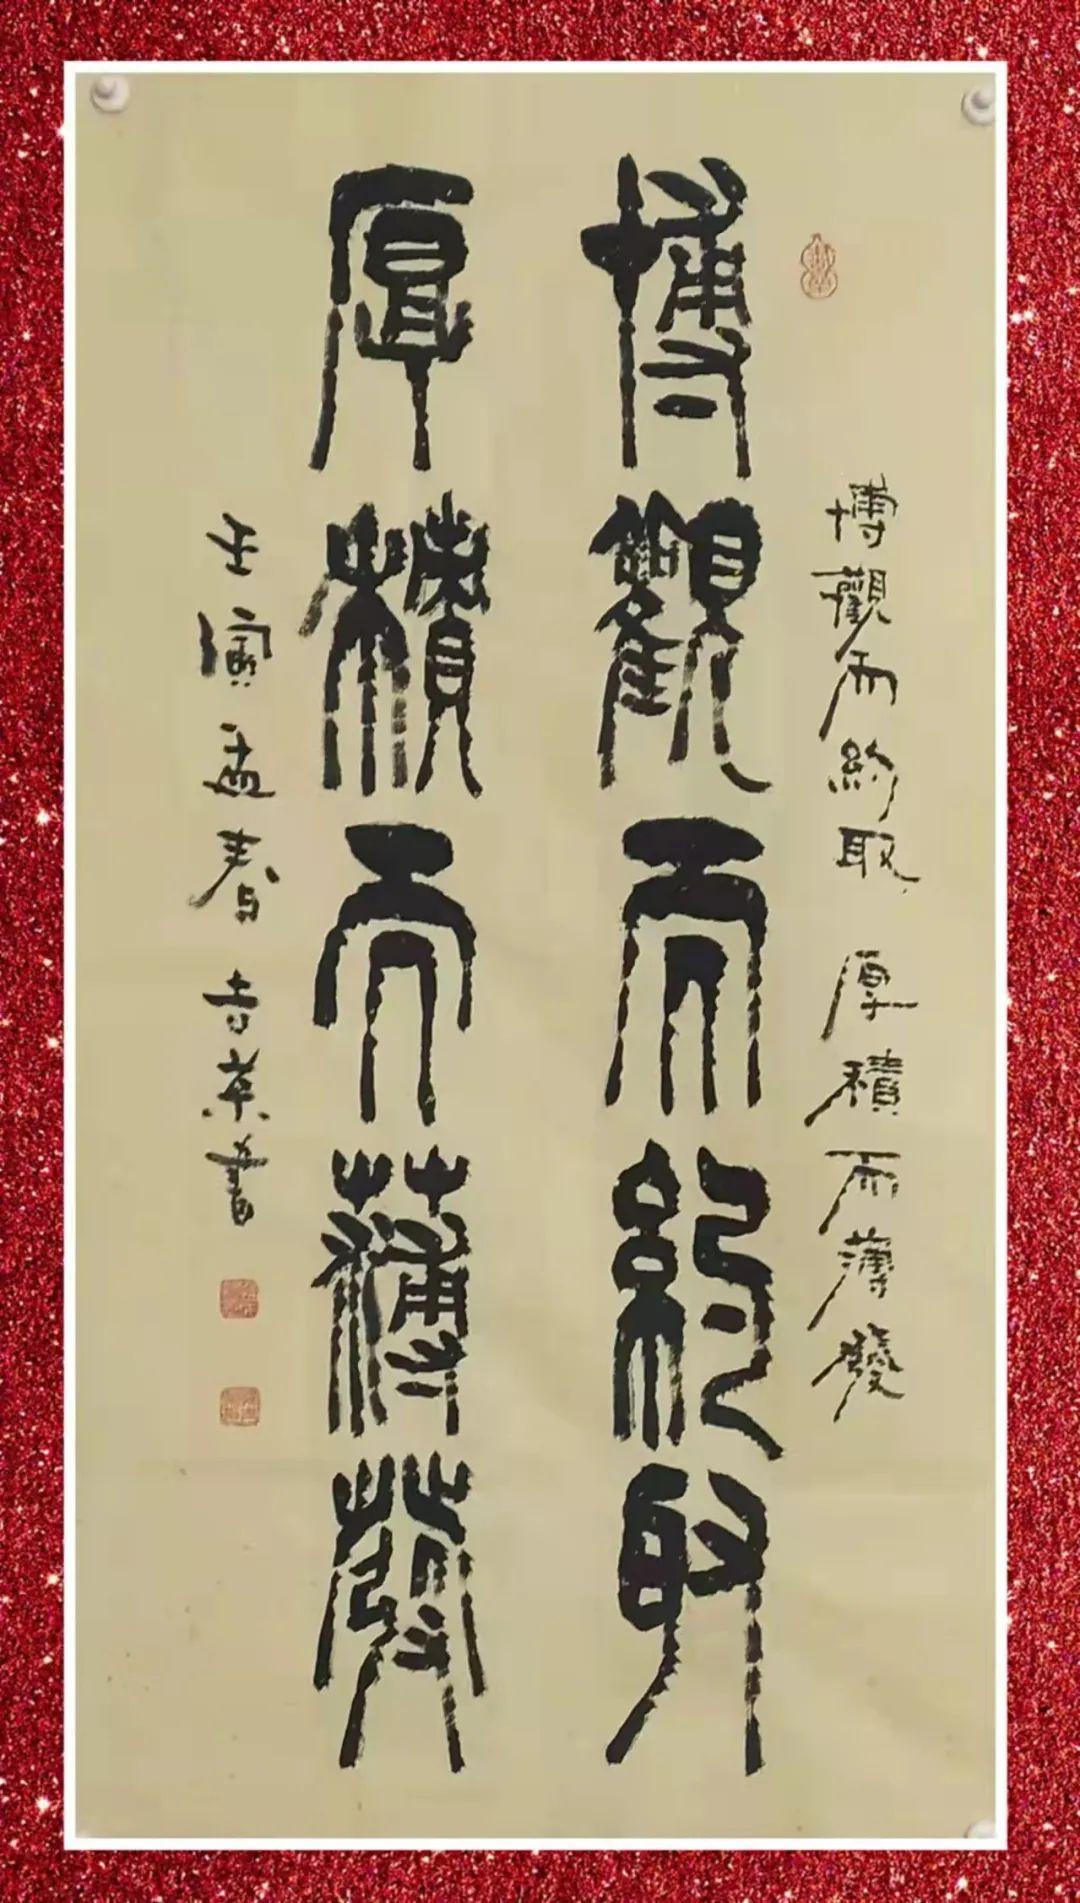 博觀而約取
厚積而薄發
博觀而約取 厚積而薄發
壬寅孟春 吉英書